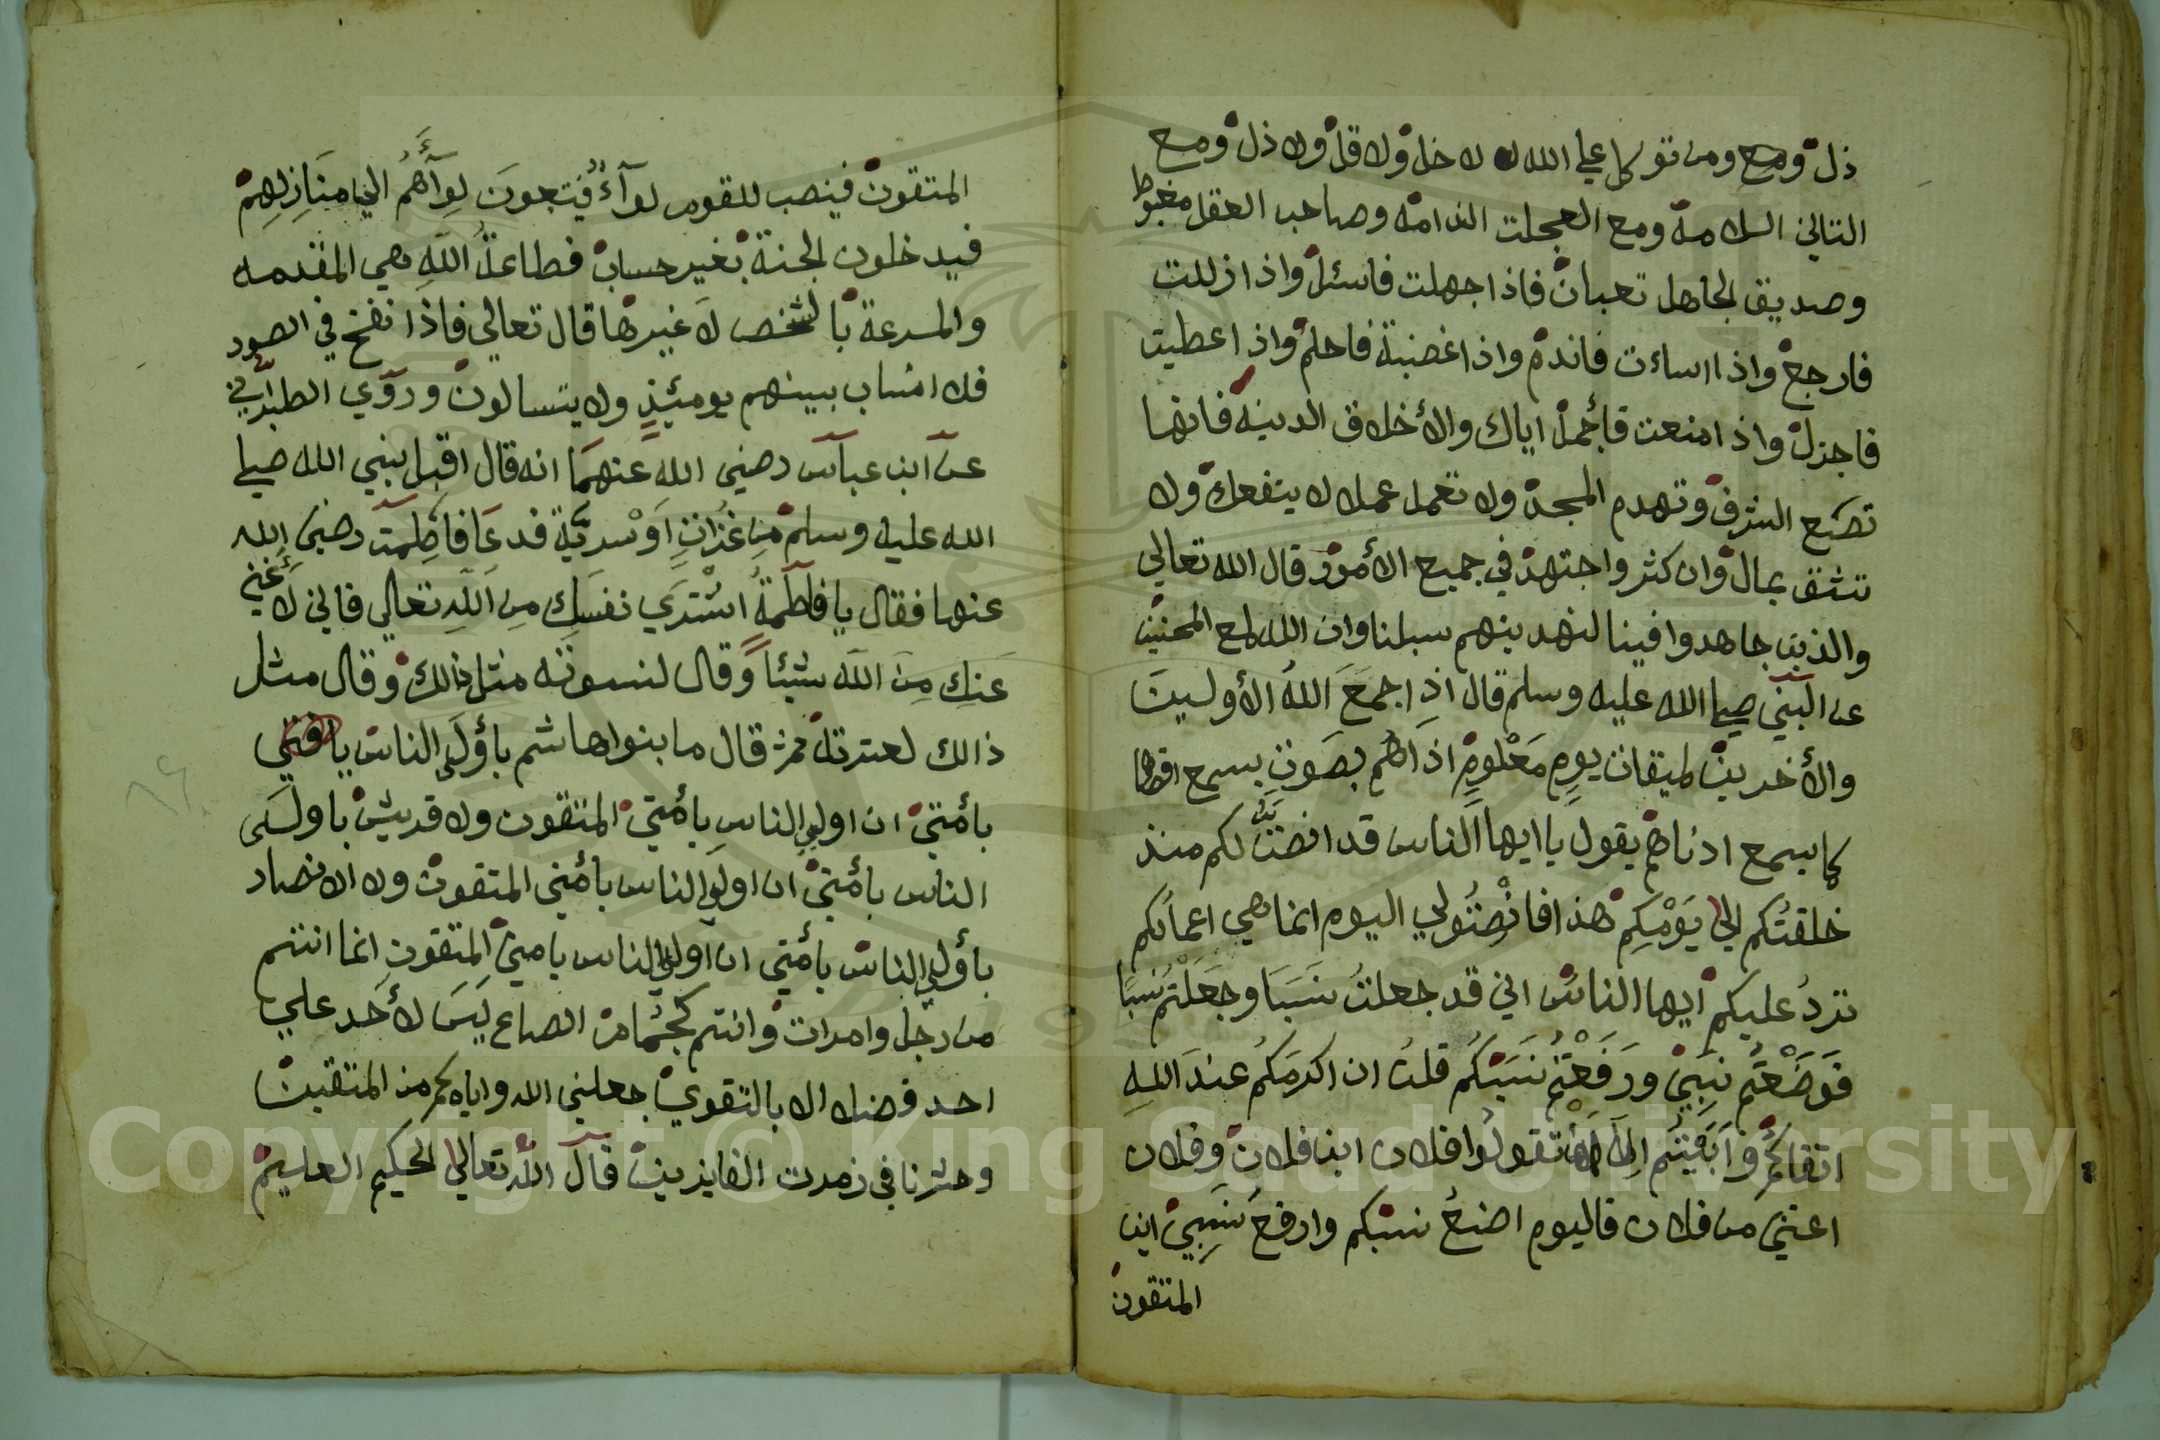 ذل ومع ومن توكل علي الله لا خل ولا قل ولا ذل ومع
التاني السلامة ومع العجلت الندامه وصاحب العقل مغبوط
وصديق الجاهل تعبان فاذا جهلت فاسئل واذا زللت
فارجع واذا اساءت فاندم واذا غضبة فاحلم واذ اعطيت
فاجزل واذا منعت فأجمل اياك والأخلاق الدنية فانها
تضع الشرف وتهدم المجد ولا تعمل عملا لا ينفعك ولا
تثق بمال وان كثر واجتهد في جميع الأمور قال الله تعالي
والذين جاهدوا فينا لنهدينهم سبلنا وان الله لمع المحسنين
عن النبي صلي الله عليه وسلم قال اذا جمع الله الأوليت
والأخرين لميقات يوم معلوم اذا هم بصوت يسمع اقصاهم
كما يسمع ادناهم يقول يا ايها الناس قد انصت لكم منذ
خلقتكم الي يومكم هذا فانصتولي اليوم انما هي اعمالكم
ترد عليكم ايها الناس اني قد جعلت نسبا وجعلتم نسبا
فوضعتم نسبي ورفعتم نسبكم قلت ان اكرمكم عند الله
اتقاكم وابيتم الا تقولوا فلان ابن فلان وفلان
اغني من فلان فاليوم اضع نسبكم وارفع نسبي اين
المتقون
المتقون فينصب للقوم لوآء فيتبعون لوآءهم الي منازلهم
فيدخلون الجنة بغير حساب فطاعة الله هي المقدمه
والمسرعة بالشخص لا غيرها قال تعالي فاذا نفخ في الصور
فلا انساب بينهم يومئذ ولا يتسالون وروي الطبراني
عن ابن عباس رضي الله عنهما انه قال اقبل نبي الله صلي
الله عليه وسلم من غزات او سرية فدعا فاطمت رضي الله
عنها فقال يا فاطمة اشتري نفسك من الله تعالي فاني لا أغني
عنك من الله شيئا وقال لنسوته مثل ذالك وقال مثل
ذالك لعترته ثم قال ما بنوا هاشم بأولي الناس يا متي
بأمتي ان اولي الناس بأمتي المتقون ولا قريش باولي
الناس بأمتي ان اولي الناس بأمتي المتقون ولا الانصار
بأولي الناس بأمتي ان اولي الناس بامتي المتقون انما انتم
من رجل وامرات وانتم كجمام الصاع ليس لأحد علي
احد فضل الا بالتقوي جعلني الله واياكم من المتقين
وحشرنا في زمرت الفايزين قال الله تعالي الحكيم العليم
Copyright © King Saud University